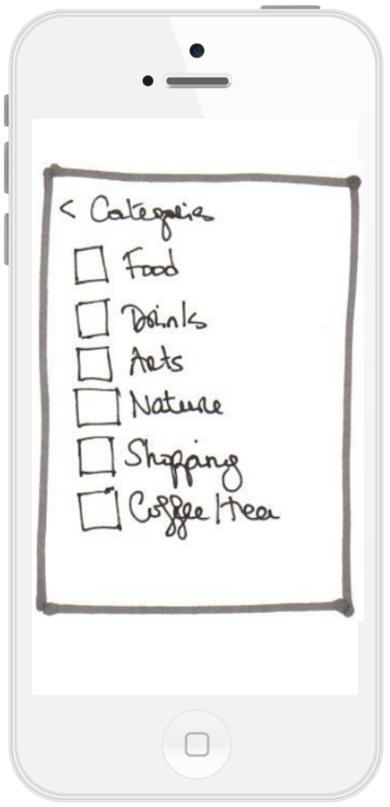 < Categories
Food
Drinks
Arts
Nature
Shopping
Coffee/tea